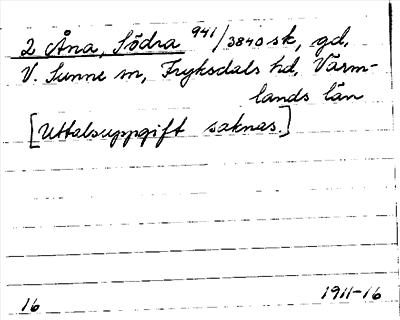 2 Åna, Södra 941/3840 sk, gd,
V. Sunne sn, Fryksdals hd, Värm-
lands län
[Uttalsuppgift saknas.]
16 1911-16